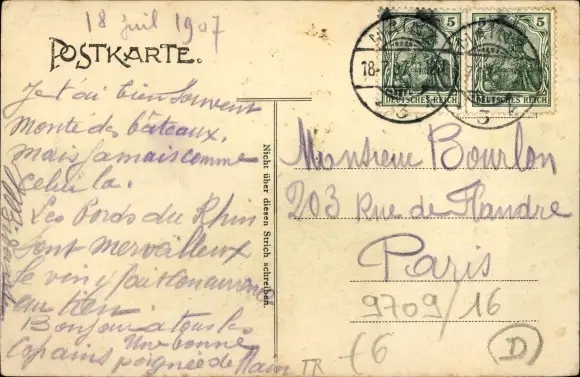 18 Juil 1907
POSTKARTE.
5 5
DEUTSCHES REICH DEUTSCHES REICH
18.
Je t'ai bien souvent
monté des bateaux,
mais jamais comme
celui la.
Les Bords du Rhin
sont merveilleux
le vin y fait
Bonjour a tous les
copains Une bonne
poignée de Main
Nicht über diesen Strich schreiben.
Monsieur Bourlon
203 Rue de Flandre
Paris
9709/16
£6
D
TR